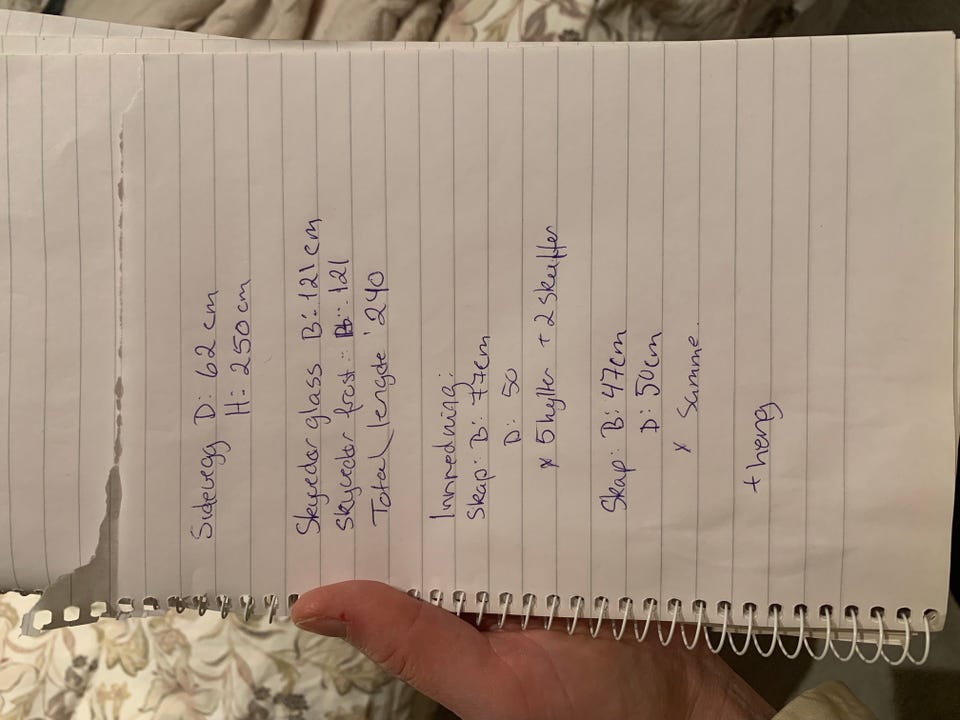 Sidevegg D: 62 cm
H: 250 cm
Skyvedør glass B: 121 cm
Skyvedør frost: B: 121
Total lengde: 240
Innredning:
Skap: B: 77cm
D: 50
x 5 hyller + 2 skuffer
Skap: B: 47cm
D: 50cm
x Samme.
+ heng